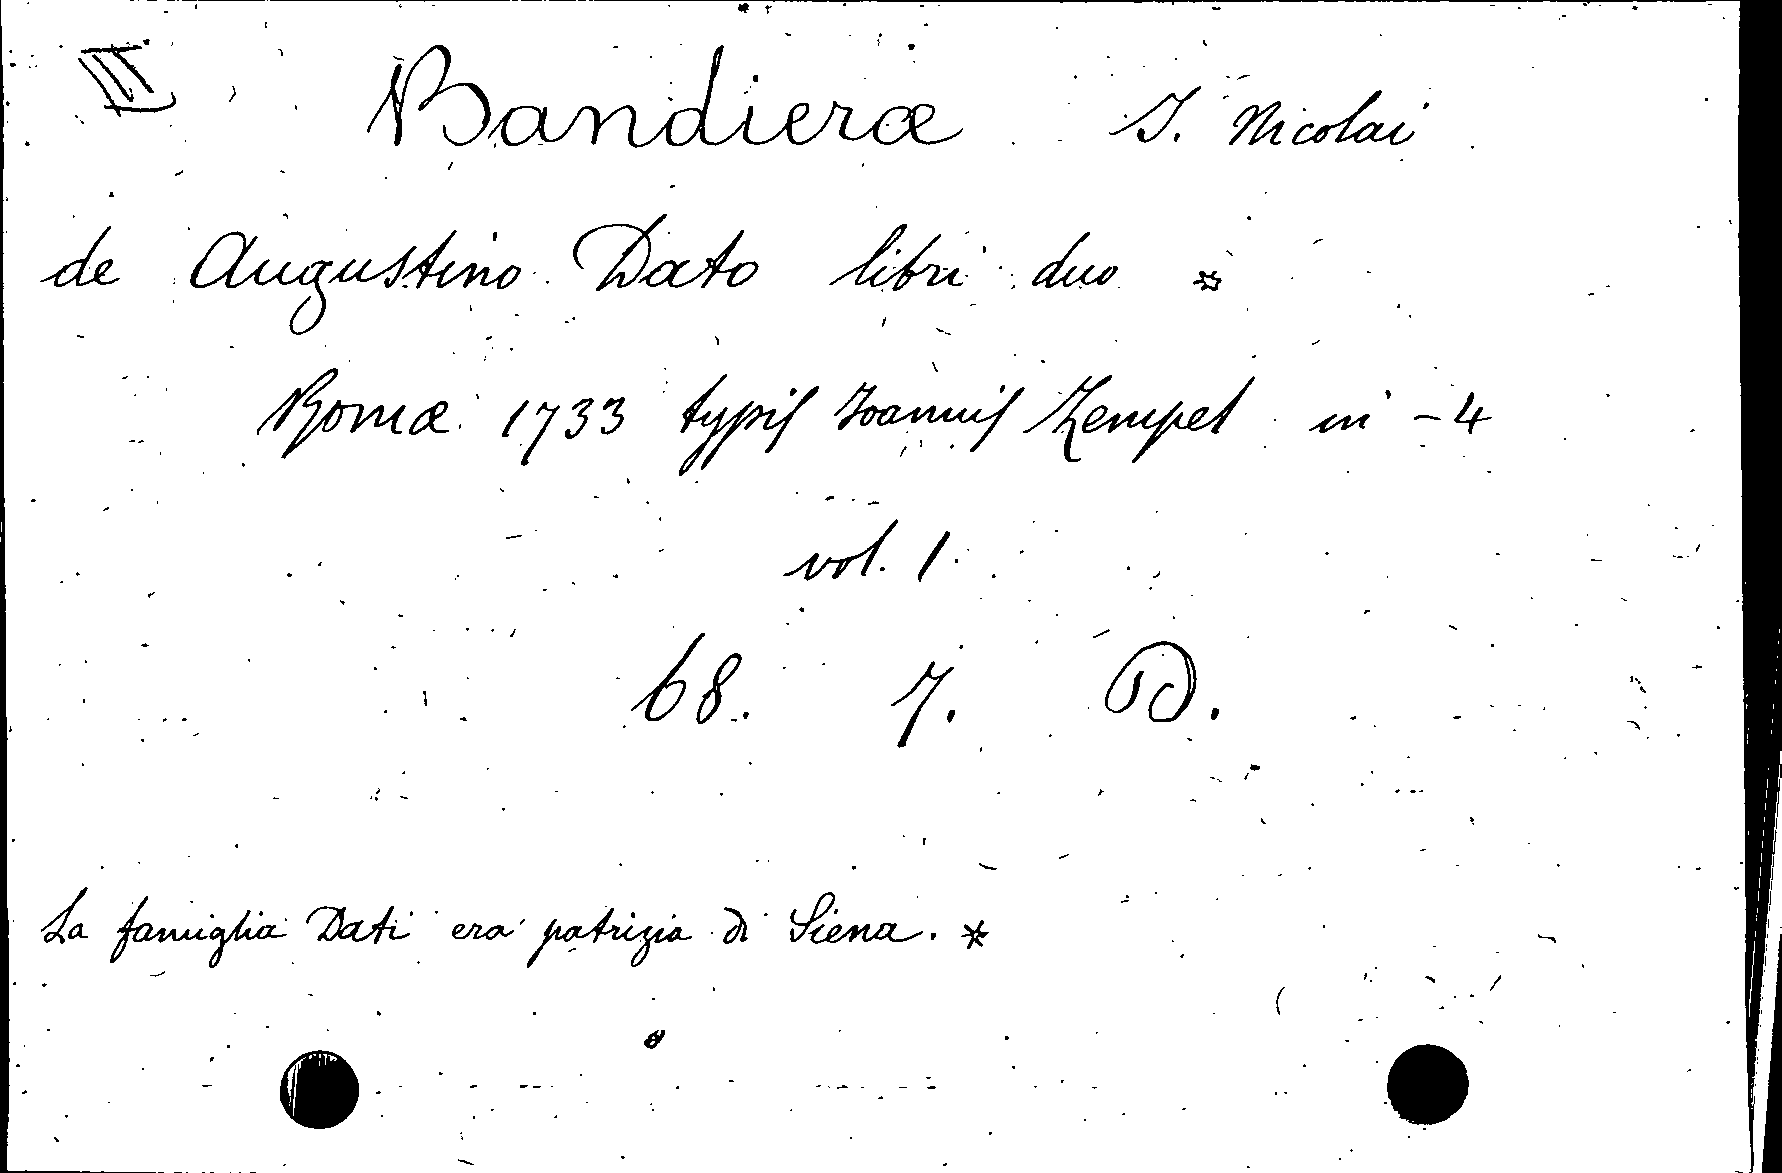 III Bandieræ J. Nicolai
de Augustino Dato libri duo *
Romæ 1733 typis Joannis Zempel in -4
vol. 1.
68. 7. D.
La famiglia Dati era patrizia di Siena. *